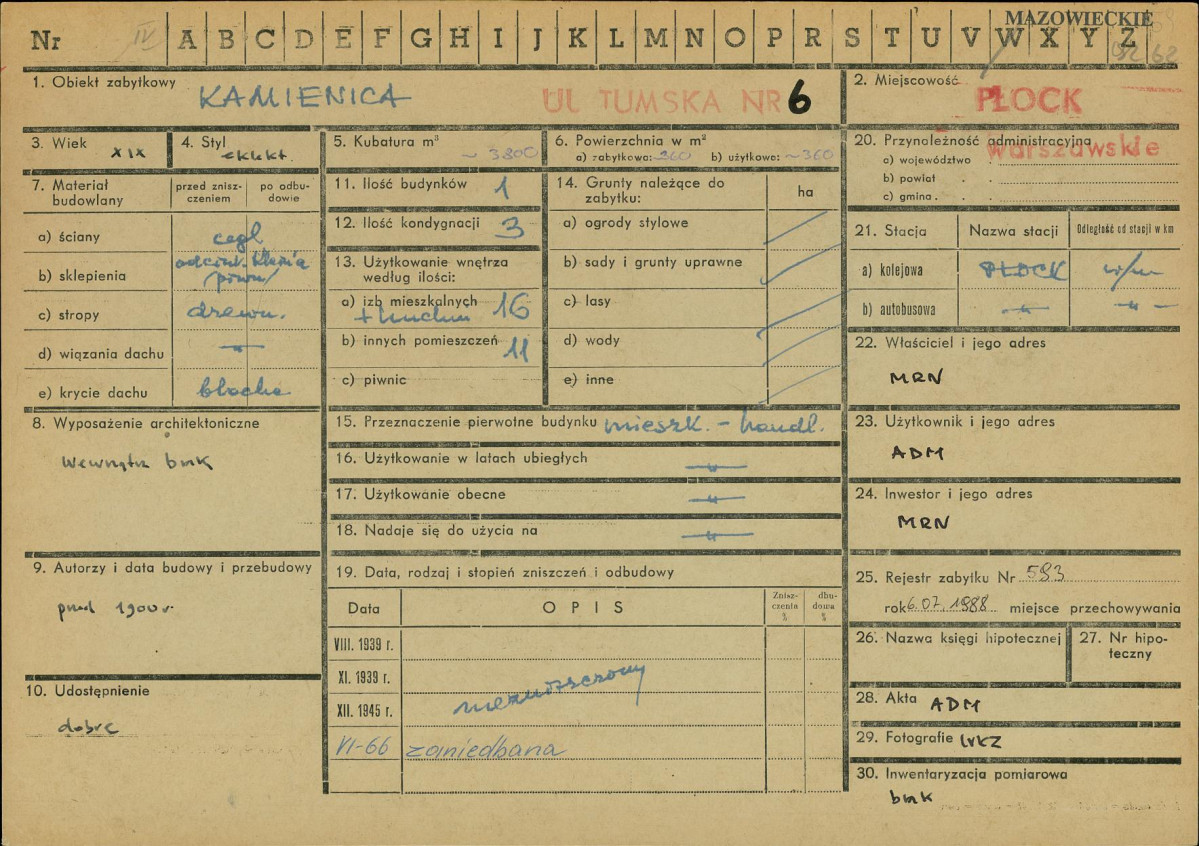 MAZOWIECKIE
Nr IV A B C D E F G H I J K L M N O P R S T U V W X Y Z
1. Obiekt zabytkowy
KAMIENICA UL TUMSKA NR 6
2. Miejscowość
PŁOCK
3. Wiek XIX
4. Styl eklekt.
5. Kubatura m³ ~ 3800
6. Powierzchnia w m²
a) zabytkowa: ~360 b) użytkowe: ~360
7. Materiał budowlany
przed zniszczeniem
po odbudowie
a) ściany cegl
b) sklepienia odcink. /piwn/
c) stropy drewn.
d) wiązania dachu —"—
e) krycie dachu blacha
8. Wyposażenie architektoniczne
wewnątrz brak
9. Autorzy i data budowy i przebudowy
przed 1900 r.
10. Udostępnienie
dobre
11. Ilość budynków 1
12. Ilość kondygnacji 3
13. Użytkowanie wnętrza według ilości:
a) izb mieszkalnych 16
+ kuchni
b) innych pomieszczeń 11
c) piwnic
14. Grunty należące do zabytku:
ha
a) ogrody stylowe
b) sady i grunty uprawne
c) lasy
d) wody
e) inne
15. Przeznaczenie pierwotne budynku mieszk. - handl.
16. Użytkowanie w latach ubiegłych —"—
17. Użytkowanie obecne —"—
18. Nadaje się do użycia na —"—
19. Data, rodzaj i stopień zniszczeń i odbudowy
Data
OPIS
Zniszczenia %
dbudowa %
VIII. 1939 r.
XI. 1939 r.
XII. 1945 r.
niezniszczony
VI-66 zaniedbana
20. Przynależność administracyjna
warszawskie
a) województwo
b) powiat . .
c) gmina . .
21. Stacja
Nazwa stacji
Odległość od stacji w km
a) kolejowa PŁOCK w/m
b) autobusowa —"— —"—
22. Właściciel i jego adres
MRN
23. Użytkownik i jego adres
ADM
24. Inwestor i jego adres
MRN
25. Rejestr zabytku Nr 593
rok 6.07.1988 miejsce przechowywania
26. Nazwa księgi hipotecznej
27. Nr hipoteczny
28. Akta ADM
29. Fotografie WKZ
30. Inwentaryzacja pomiarowa
brak